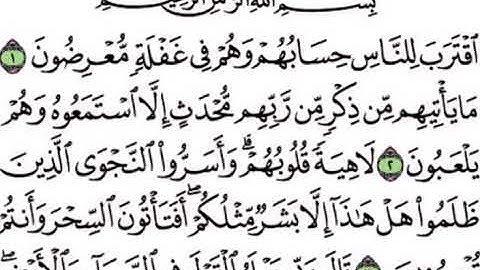 بِسْمِ اللَّهِ الرَّحْمَٰنِ الرَّحِيمِ
ٱقْتَرَبَ لِلنَّاسِ حِسَابُهُمْ وَهُمْ فِى غَفْلَةٍ مُّعْرِضُونَ ١
مَا يَأْتِيهِم مِّن ذِكْرٍ مِّن رَّبِّهِم مُّحْدَثٍ إِلَّا ٱسْتَمَعُوهُ وَهُمْ
يَلْعَبُونَ ٢ لَاهِيَةً قُلُوبُهُمْ ۗ وَأَسَرُّوا۟ ٱلنَّجْوَى ٱلَّذِينَ
ظَلَمُوا۟ هَلْ هَٰذَآ إِلَّا بَشَرٌ مِّثْلُكُمْ ۖ أَفَتَأْتُونَ ٱلسِّحْرَ وَأَنتُمْ